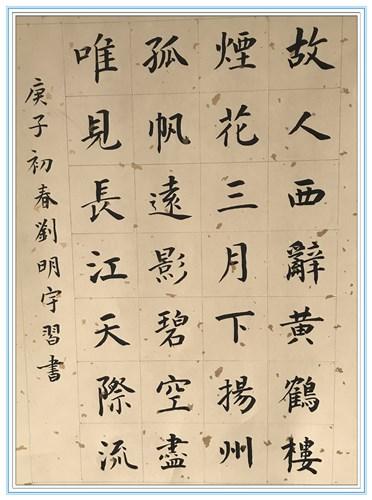 故人西辭黄鶴樓
煙花三月下揚州
孤帆遠影碧空盡
唯見長江天際流
庚子初春劉明宇習書